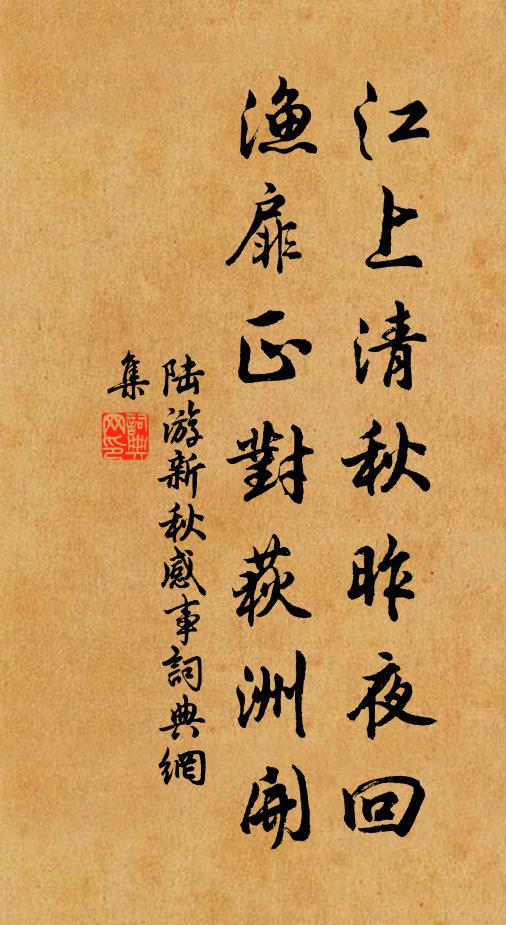 江上清秋昨夜回
漁扉正對荻洲開
陆游新秋感事詞典網
集
詞典
网印